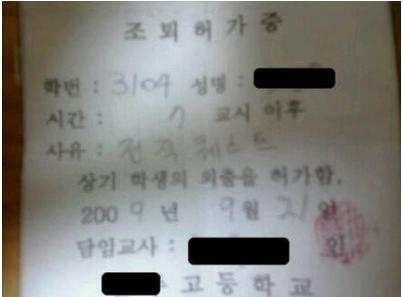 조퇴허가증
학번 : 3104 성명 :
시간 : 7 교시 이후
사유 : 전직 퀘스트
상기 학생의 외출을 허가함.
2009년 9월 21일
담임교사 : 인
고등학교